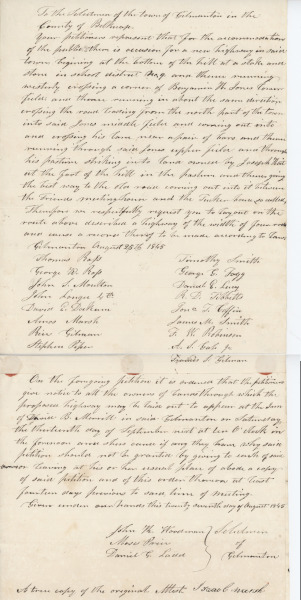 To the Selectmen of the town of Gilmanton in the
County of Belknap
Your petitioners represent that for the accommodation
of the public there is occasion for a new highway in said
town beginning at the bottom of the hill at a stake and
stone in school district No 9 and thence running
westerly crossing a corner of Benjamin W. Jones
field and thence running in about the same direction
crossing the road leading from the north part of the town
into said Jones middle field and coming out into
and crossing his lane near a pair of bars and thence
running through said Jones upper field and through
his pasture striking into land owned by Joseph
at the foot of the hill in the pasture and thence going
the best way to the old road coming out into it between
the Friends meetinghouse and the so called,
Therefore we respectfully request you to lay out on the
route above described a highway of the width of four rods
and cause a record thereof to be made according to law
Gilmanton August 25th 1845
Thomas Timothy Smith
George W. George E. Fogg
John S. Moulton Daniel E.
John 4th R. D. Tibbetts
David E. Jona T. Coffin
Amos Marsh James M. Smith
Gilman F. R. Robinson
Stephen Piper A. S. Jr
S. Gilman
On the foregoing petition it is ordered that the petitioners
give notice to all the owners of lands through which the
proposed highway may be laid out to appear at the Inn
of David B. Merrill in said Gilmanton on Saturday
the thirteenth day of September next at ten O'clock in
the forenoon and shew cause if any they have why said
petition should not be granted by giving to each of said
owners leaving at his or her usual place of abode a copy
of said petition and of this order thereon at least
fourteen days previous to said time of meeting.
Given under our hands this twenty seventh day of August 1845
John W. Selectmen
Moses Price of
Daniel C. Ladd Gilmanton
A true copy of the original Attest Isaac